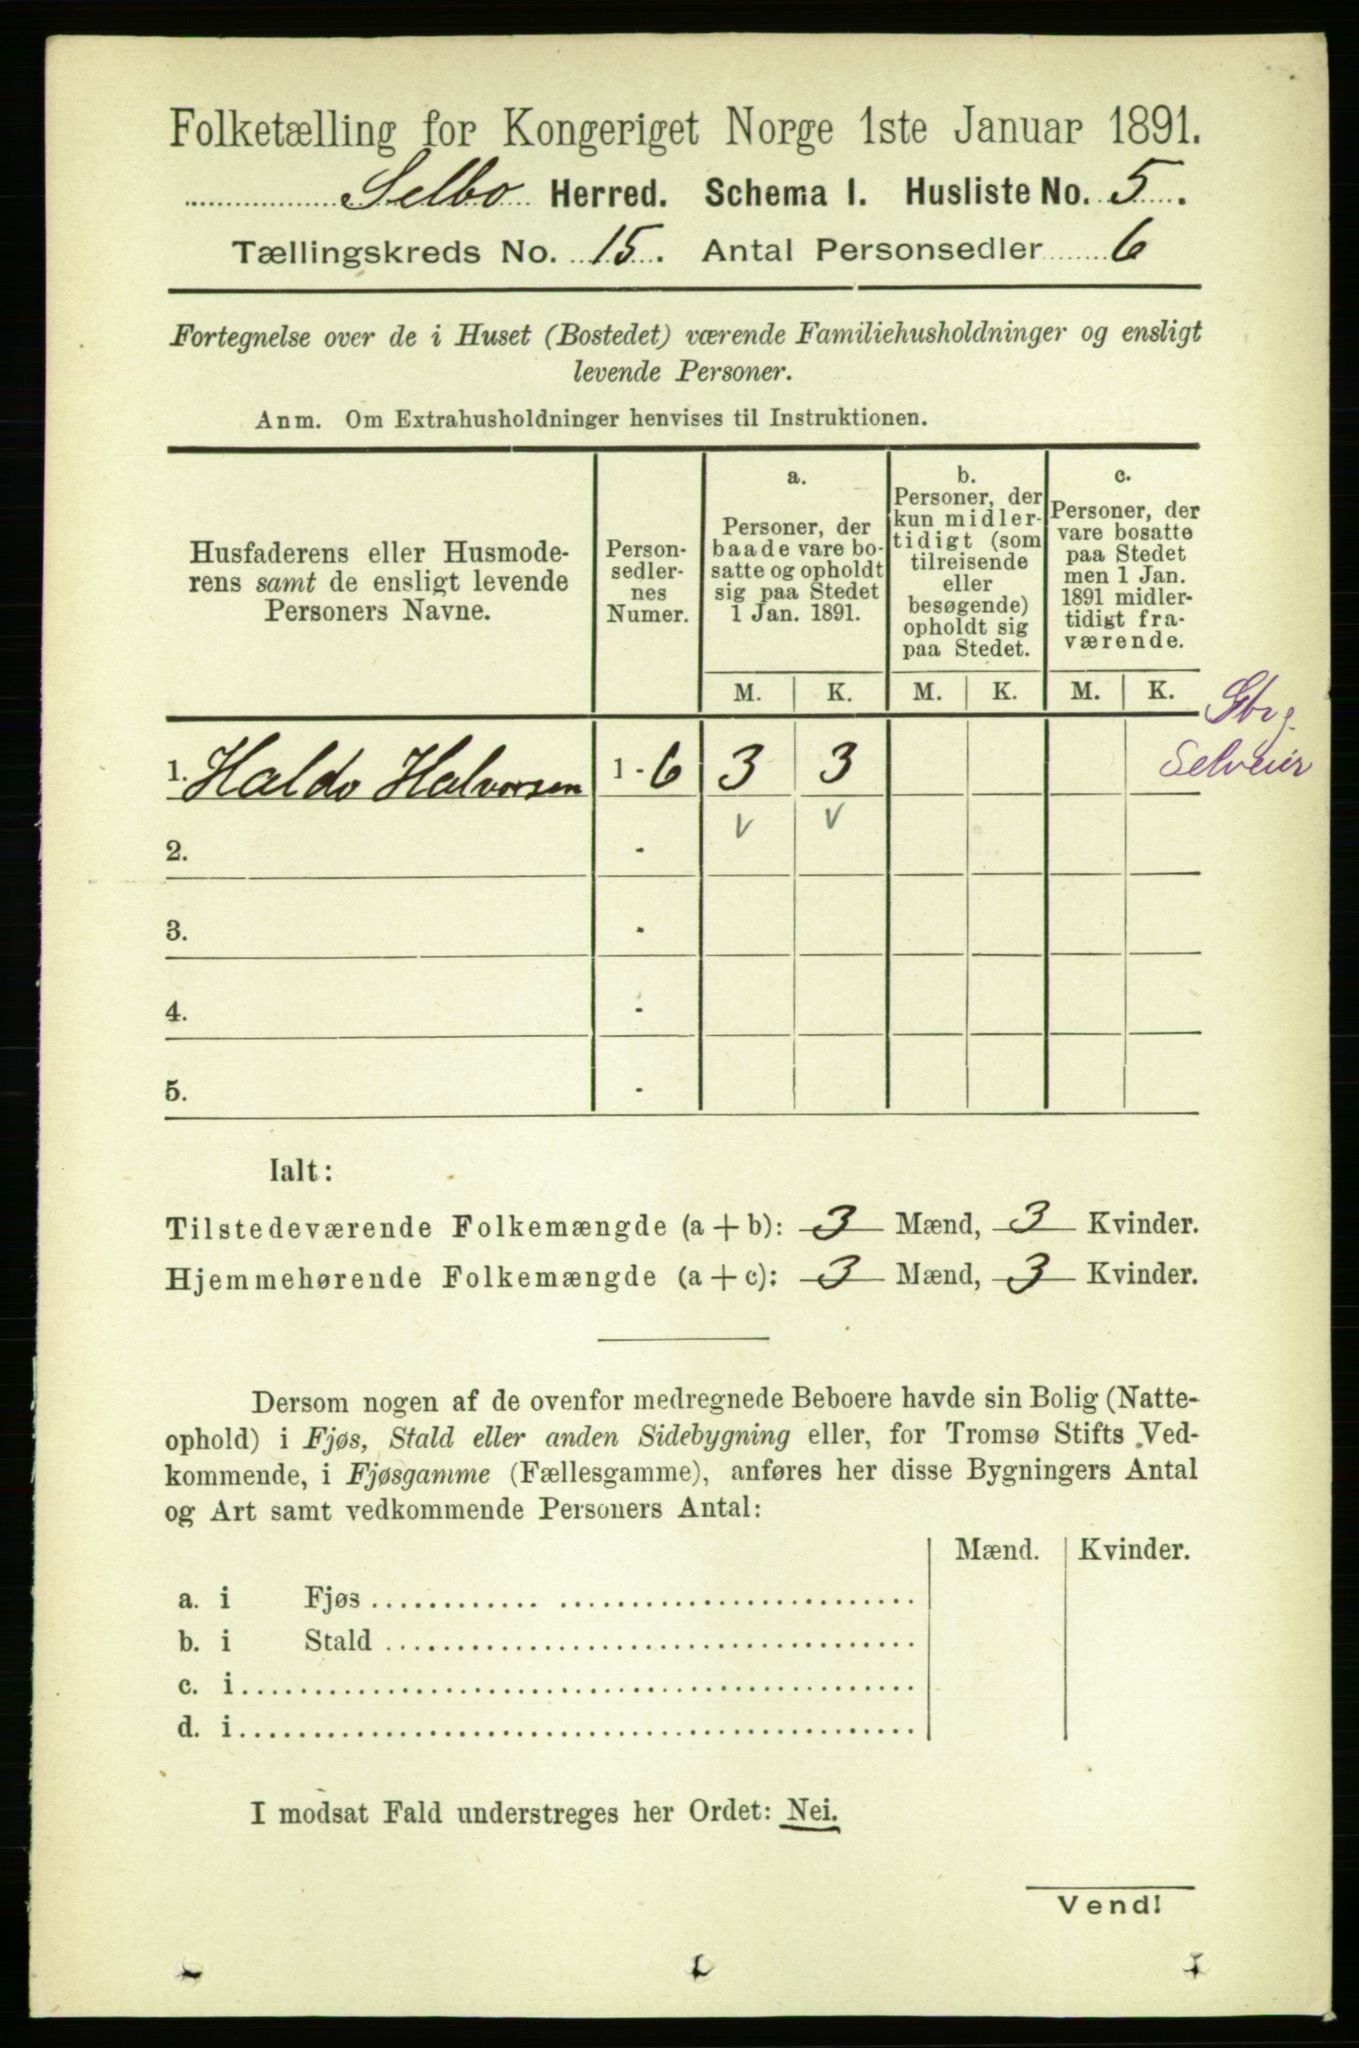 Folketælling for Kongeriget Norge 1ste Januar 1891.
Selbo Herred. Schema I. Husliste No. 5.
Tællingskreds No. 15. Antal Personsedler 6
Fortegnelse over de i Huset (Bostedet) værende Familiehusholdninger og ensligt
levende Personer.
Anm. Om Extrahusholdninger henvises til Instruktionen.
Husfaderens eller Husmode-
rens samt de ensligt levende
Personers Navne.
Person-
sedler-
nes
Numer.
a.
Personer, der
baade vare bo-
satte og opholdt
sig paa Stedet
1 Jan. 1891.
b.
Personer, der
kun midler-
tidigt (som
tilreisende
eller
besøgende)
opholdt sig
paa Stedet.
c.
Personer, der
vare bosatte
paa Stedet
men 1 Jan.
1891 midler-
tidigt fra-
værende.
M. K. M. K. M. K.
Selveier
1. Haldo Halvorsen 1 - 6 3 3
v v
2. -
3. -
4. -
5. -
Ialt:
Tilstedeværende Folkemængde (a + b): 3 Mænd, 3 Kvinder.
Hjemmehørende Folkemængde (a + c): 3 Mænd, 3 Kvinder.
Dersom nogen af de ovenfor medregnede Beboere havde sin Bolig (Natte-
ophold) i Fjøs, Stald eller anden Sidebygning eller, for Tromsø Stifts Ved-
kommende, i Fjøsgamme (Fællesgamme), anføres her disse Bygningers Antal
og Art samt vedkommende Personers Antal:
Mænd. Kvinder.
a. i Fjøs
b. i Stald
c. i
d. i
I modsat Fald understreges her Ordet: Nei.
Vend!